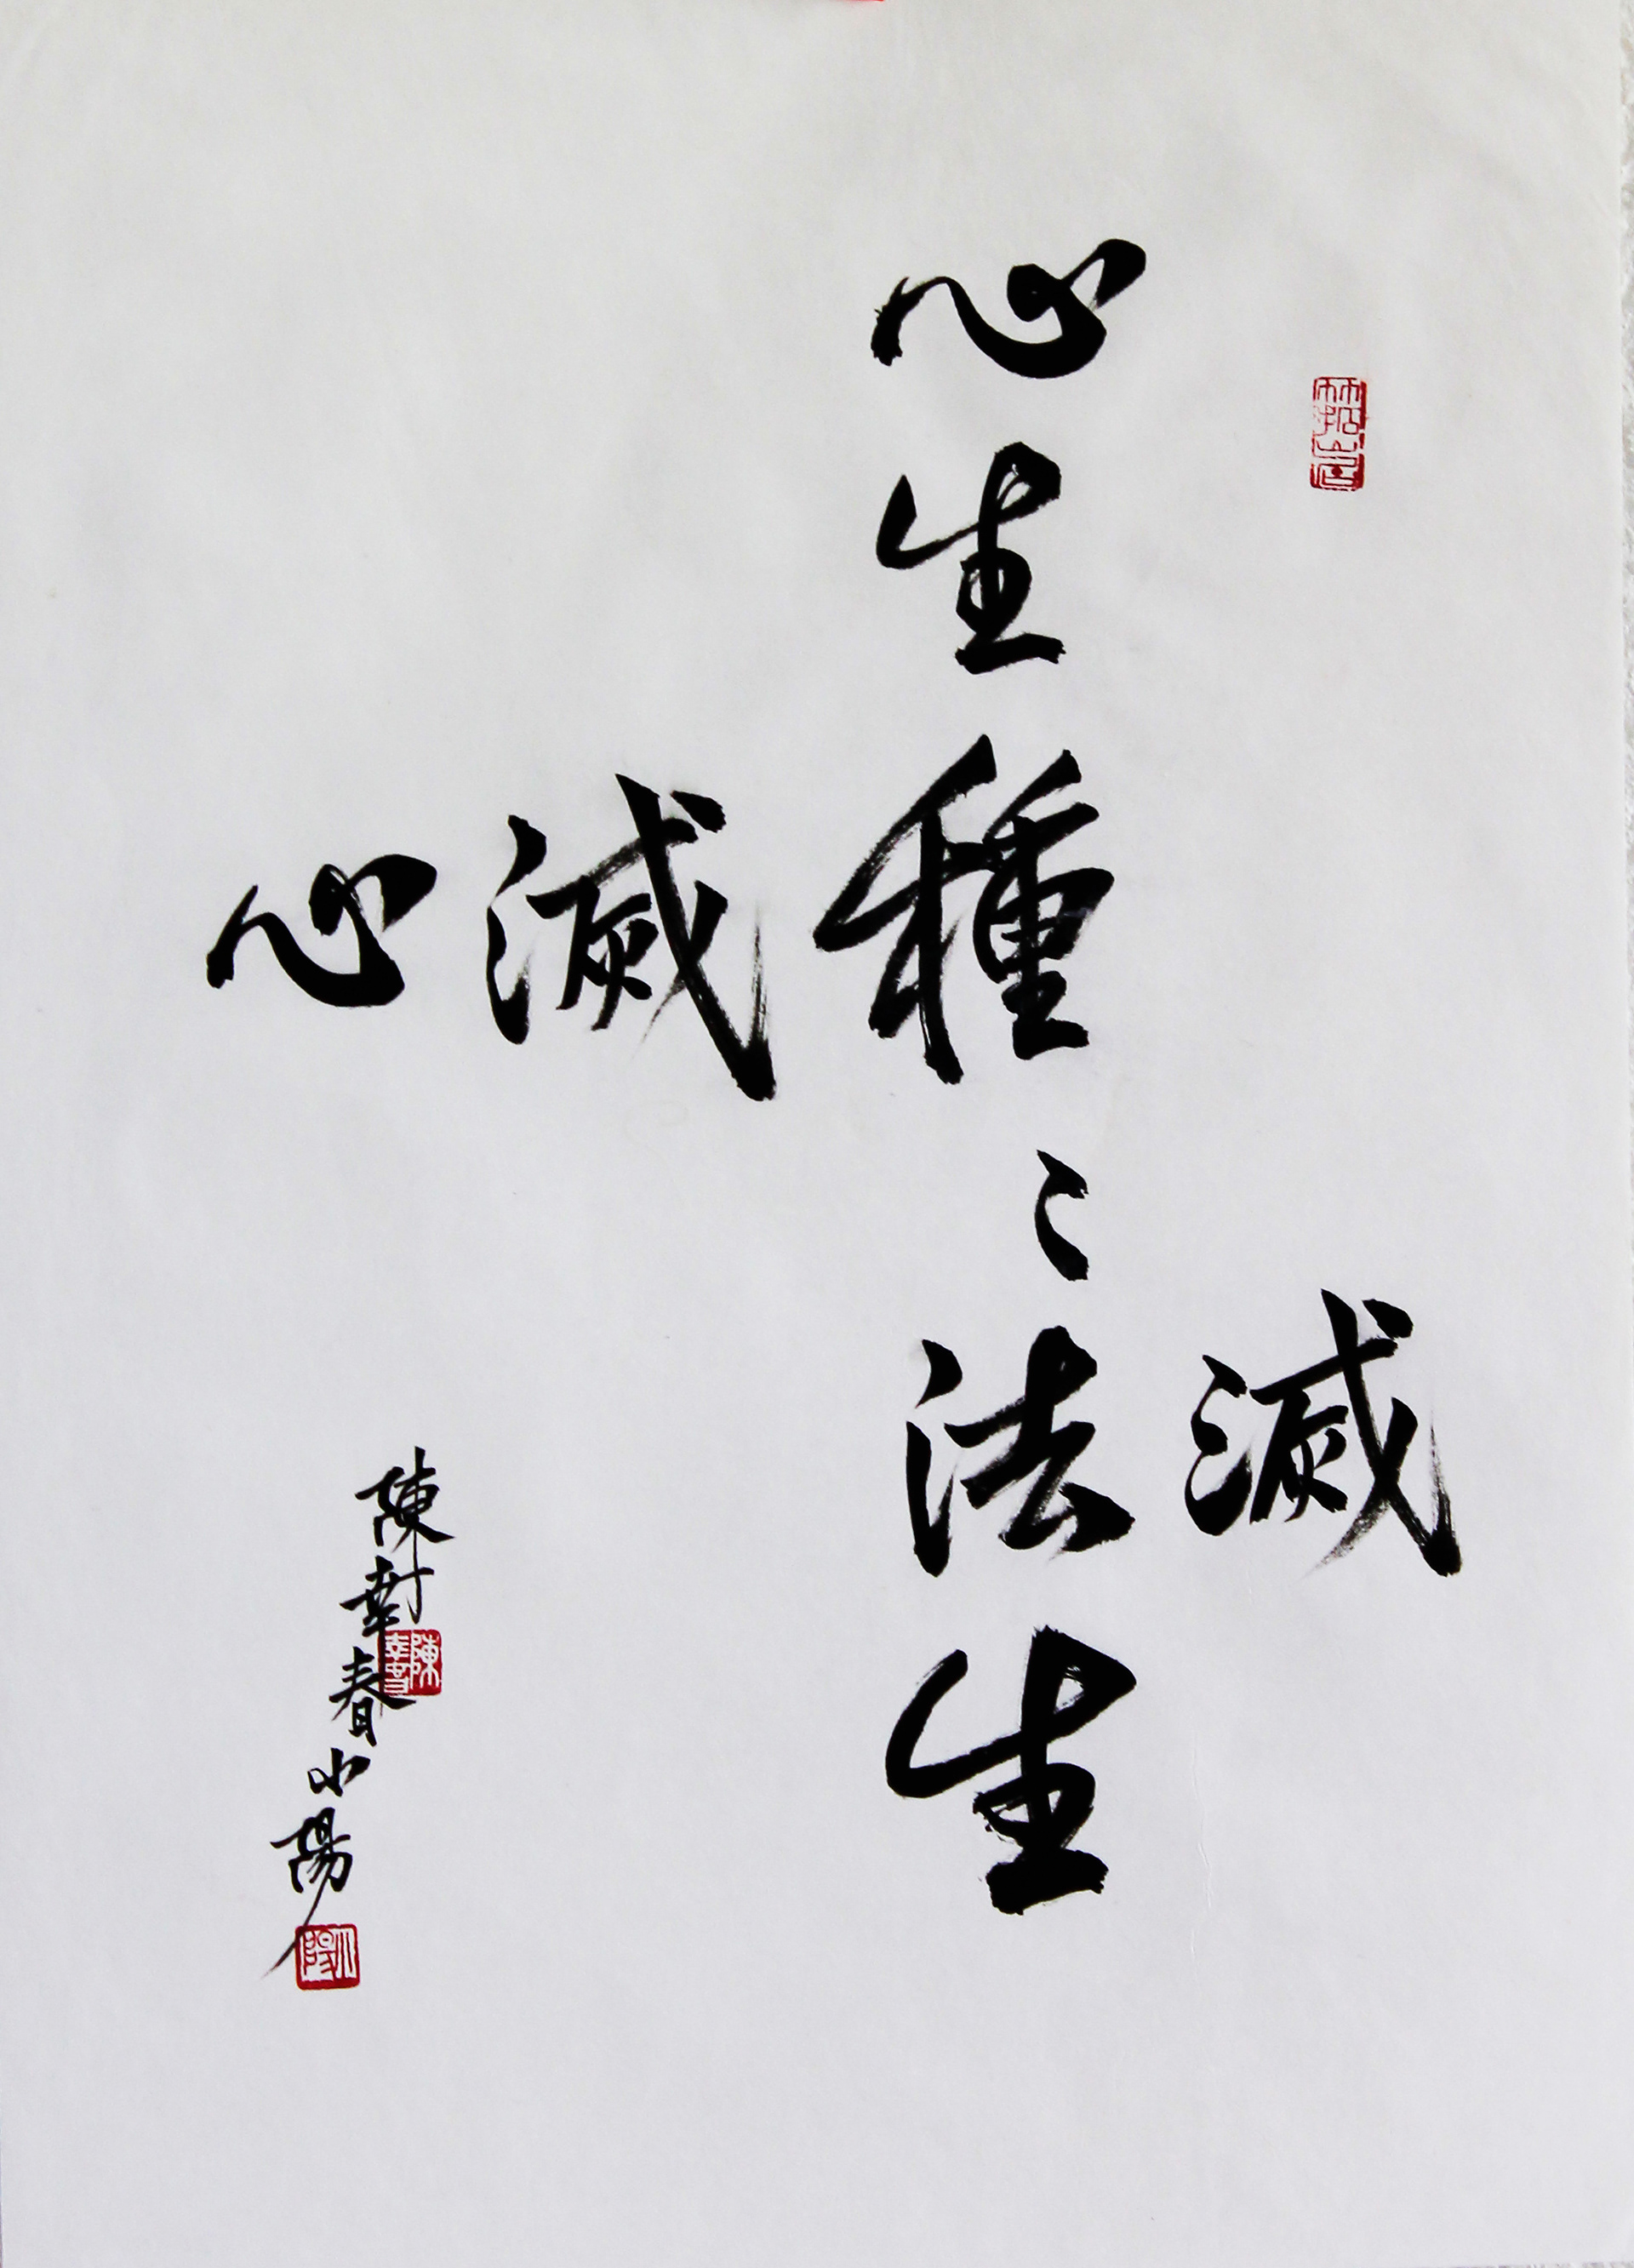 心生種〻法生
心滅
滅
陳對春小陽